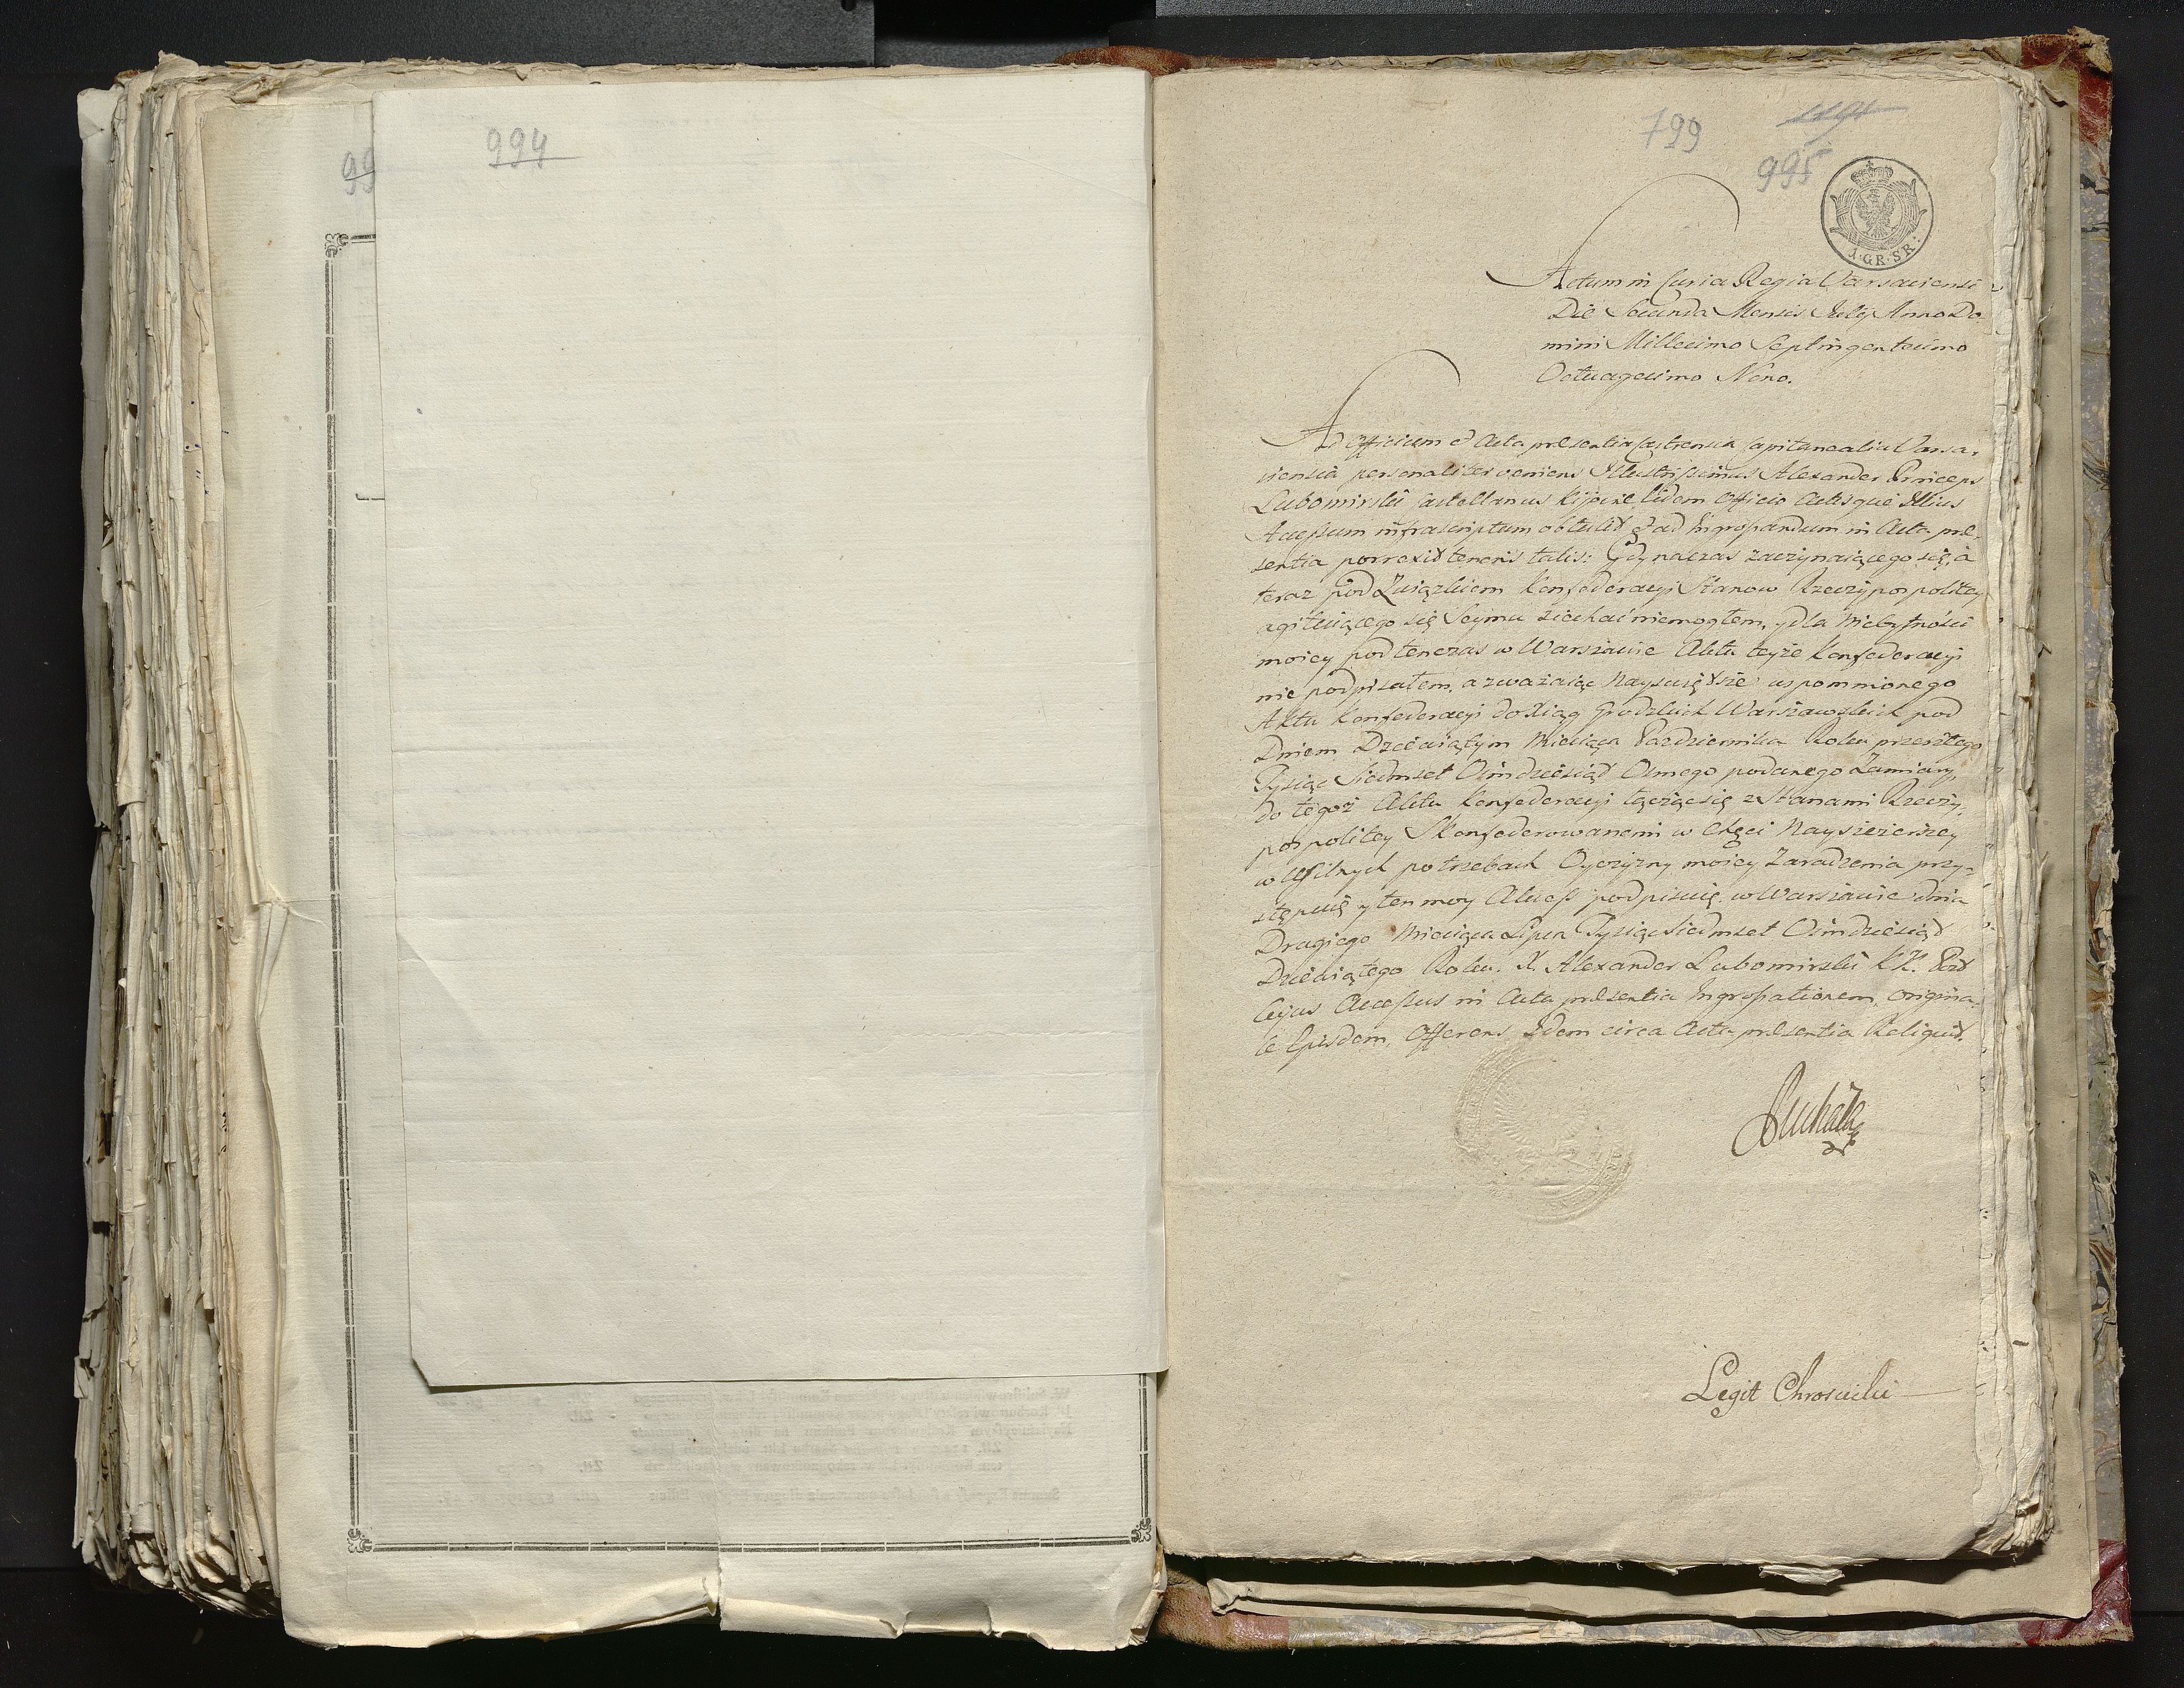 994
99
799
995
1·GR·SR:
Actum in Curia Regia Varsaviensi
Die Secunda Mensis Julij Anno Do-
mini Millesimo Septingentesimo
Octuagesimo Nono.
Ad Officium et Acta præsentia Castrensia Capitanealia Varsa-
viensia personaliter veniens Illustrissimus Alexander Princeps
Lubomirski Castellanus Kijoviæ Eidem Officio Actisque Illius
Accessum infrascriptum obtulit et ad Ingrossandum in Acta præ-
sentia porrexit tenoris talis: Gdy na czas zaczynaiącego się, a
teraz pod Związkiem Konfederacyi Stanow Rzeczypospolitey
agituiącego się Seymu ziechać niemogłem, y dla Niebytności
moiey podtenczas w Warszawie Aktu teyże Konfederacyi
nie podpisałem, a zważaiąc Nayświętsze wspomnionego
Aktu Konfederacyi do Xiąg Grodzkich Warszawskich pod
Dniem Dziewiątym Miesiąca Października Roku przeszłego
Tysiąc Siedmset Ośmdziesiąt Osmego podanego Zamiary,
do tegoż Aktu Konfederacyi łącząc się z Stanami Rzeczy-
pospolitey Skonfederowanemi w Chęci Nayszczerszey
w Usilnych potrzebach Oyczyzny moiey Zaradzenia przy-
stępuię y ten moy Akcess podpisuię w Warszawie dnia
Drugiego Miesiąca Lipca Tysiąc Siedmset Ośmdziesiąt
Dziewiątego Roku. X. Alexander Lubomirski K.K. Post
Cujus Accessus in Acta præsentia Ingrossationem, origina-
le Ejusdem, Offerens Idem circa Acta præsentia Reliquit.
Legit Chrościcki